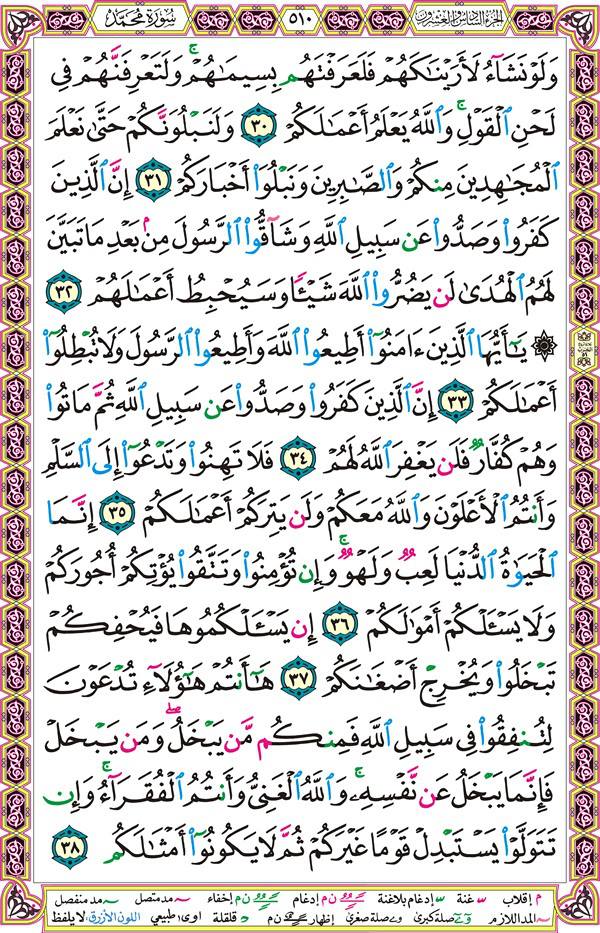 الجزء السادس والعشرون
٥١٠
سورة محمد
وَلَوْ نَشَآءُ لَأَرَيْنَٰكَهُمْ فَلَعَرَفْتَهُم بِسِيمَٰهُمْ ۚ وَلَتَعْرِفَنَّهُمْ فِى
لَحْنِ ٱلْقَوْلِ ۚ وَٱللَّهُ يَعْلَمُ أَعْمَٰلَكُمْ ٣٠ وَلَنَبْلُوَنَّكُمْ حَتَّىٰ نَعْلَمَ
ٱلْمُجَٰهِدِينَ مِنكُمْ وَٱلصَّٰبِرِينَ وَنَبْلُوَا۟ أَخْبَارَكُمْ ٣١ إِنَّ ٱلَّذِينَ
كَفَرُوا۟ وَصَدُّوا۟ عَن سَبِيلِ ٱللَّهِ وَشَآقُّوا۟ ٱلرَّسُولَ مِنۢ بَعْدِ مَا تَبَيَّنَ
لَهُمُ ٱلْهُدَىٰ لَن يَضُرُّوا۟ ٱللَّهَ شَيْـًٔا وَسَيُحْبِطُ أَعْمَٰلَهُمْ ٣٢
۞ يَٰٓأَيُّهَا ٱلَّذِينَ ءَامَنُوٓا۟ أَطِيعُوا۟ ٱللَّهَ وَأَطِيعُوا۟ ٱلرَّسُولَ وَلَا تُبْطِلُوٓا۟
أَعْمَٰلَكُمْ ٣٣ إِنَّ ٱلَّذِينَ كَفَرُوا۟ وَصَدُّوا۟ عَن سَبِيلِ ٱللَّهِ ثُمَّ مَاتُوا۟
وَهُمْ كُفَّارٌ فَلَن يَغْفِرَ ٱللَّهُ لَهُمْ ٣٤ فَلَا تَهِنُوا۟ وَتَدْعُوٓا۟ إِلَى ٱلسَّلْمِ
وَأَنتُمُ ٱلْأَعْلَوْنَ وَٱللَّهُ مَعَكُمْ وَلَن يَتِرَكُمْ أَعْمَٰلَكُمْ ٣٥ إِنَّمَا
ٱلْحَيَوٰةُ ٱلدُّنْيَا لَعِبٌ وَلَهْوٌ ۚ وَإِن تُؤْمِنُوا۟ وَتَتَّقُوا۟ يُؤْتِكُمْ أُجُورَكُمْ
وَلَا يَسْـَٔلْكُمْ أَمْوَٰلَكُمْ ٣٦ إِن يَسْـَٔلْكُمُوهَا فَيُحْفِكُمْ
تَبْخَلُوا۟ وَيُخْرِجْ أَضْغَٰنَكُمْ ٣٧ هَٰٓأَنتُمْ هَٰٓؤُلَآءِ تُدْعَوْنَ
لِتُنفِقُوا۟ فِى سَبِيلِ ٱللَّهِ فَمِنكُم مَّن يَبْخَلُ ۖ وَمَن يَبْخَلْ
فَإِنَّمَا يَبْخَلُ عَن نَّفْسِهِۦ ۚ وَٱللَّهُ ٱلْغَنِىُّ وَأَنتُمُ ٱلْفُقَرَآءُ ۚ وَإِن
تَتَوَلَّوْا۟ يَسْتَبْدِلْ قَوْمًا غَيْرَكُمْ ثُمَّ لَا يَكُونُوٓا۟ أَمْثَٰلَكُم ٣٨
م إقلاب غنة إدغام بلاغنة ن م إدغام ن م إخفاء مد متصل مد منفصل
المد اللازم صلة كبرى صلة صغرى إظهار ن م قلقلة اوى: طبيعي اللون الأزرق: لا يلفظ